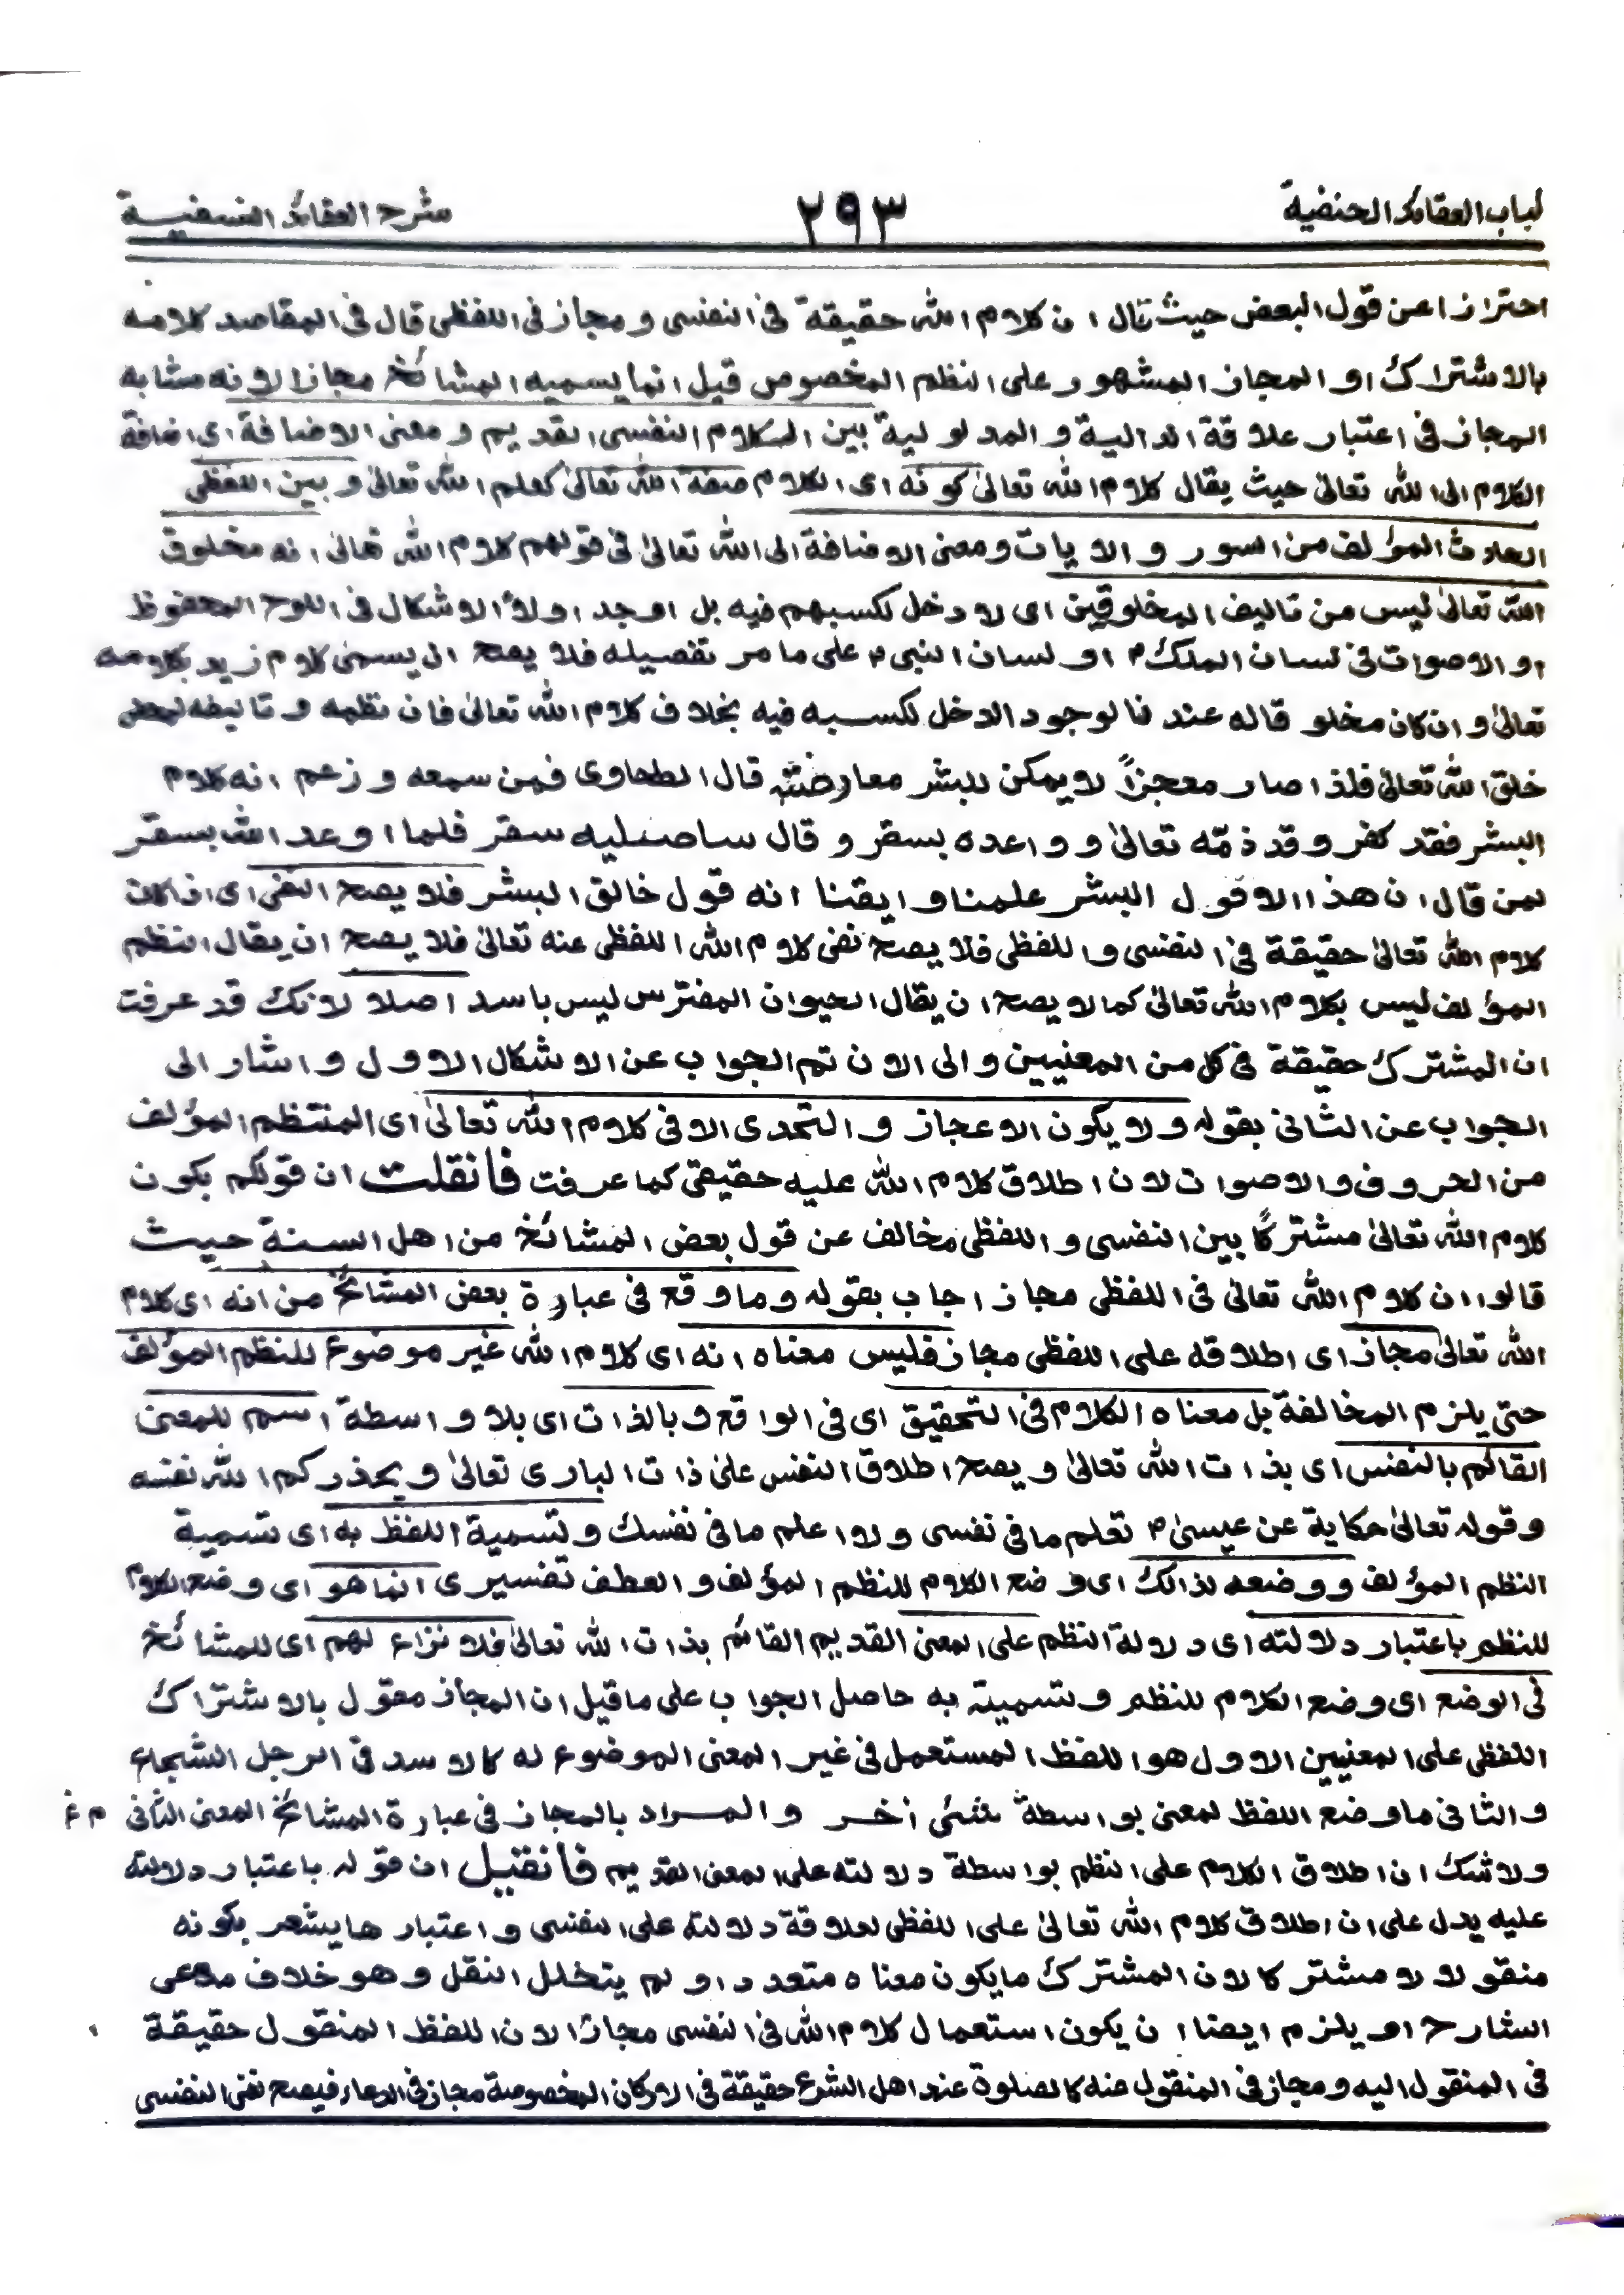 لباب العقائد الحنفية ٢٩٣ شرح العقائد النسفية
احترازا عن قول البعض حيث قال ان كلام الله حقيقة فى النفسى و مجاز فى اللفظى قال فى المقاصد كلامه
بالاشتراك او المجاز المشهور على النظم المخصوص قيل انما يسميه المشائخ مجازا لانه مشابه
المجاز فى اعتبار علاقة الدالية و المدلولية بين الكلام النفسى القديم و معنى الاضافة اى اضافة
الكلام الى الله تعالىٰ حيث يقال كلام الله تعالىٰ كونه اى الكلام صفة الله تعالىٰ كعلم الله تعالىٰ و بين اللفظى
الحادث المؤلف من السور و الايات و معنى الاضافة الى الله تعالىٰ فى قولهم كلام الله تعالىٰ انه مخلوق
الله تعالىٰ ليس من تاليف المخلوقين اى لا دخل لكسبهم فيه بل اوجد اولاً الاشكال فى اللوح المحفوظ
او الاصوات فى لسان الملك؏ او لسان النبى؏ على ما مر تفصيله فلا يصح ان يسمىٰ كلام زيد بكلامه
تعالىٰ و ان كان مخلوقاله عندنا لوجود الدخل لكسبه فيه بخلاف كلام الله تعالىٰ فان نظمه و تاليفه لمحض
خلق الله تعالىٰ فلذا صار معجزاً لا يمكن للبشر معارضته قال الطحاوى فمن سمعه و زعم انه كلام
البشر فقد كفر و قد ذمّه تعالىٰ و واعده بسقر و قال ساصليه سقر فلما اوعد الله بسقر
لمن قال ان هذا الا قول البشر علمنا و ايقنا انه قول خالق البشر فلا يصح النفى اى اذا كان
كلام الله تعالىٰ حقيقة فى النفسى و اللفظى فلا يصح نفى كلام الله اللفظى عنه تعالىٰ فلا يصح ان يقال النظم
المؤلف ليس بكلام الله تعالىٰ كما لا يصح ان يقال الحيوان المفترس ليس باسد اصلا لانك قد عرفت
ان المشترك حقيقة فى كل من المعنيين و الى الان تم الجواب عن الاشكال الاول و اشار الى
الجواب عن الثانى بقوله و لا يكون الاعجاز و التحدى الا فى كلام الله تعالىٰ اى المنتظم المؤلف
من الحروف و الاصوات لان اطلاق كلام الله عليه حقيقى كما عرفت فانقلت ان قولكم بكون
كلام الله تعالىٰ مشتركًا بين النفسى و اللفظى مخالف عن قول بعض المشائخ من اهل السنة حيث
قالوا ان كلام الله تعالىٰ فى اللفظى مجاز اجاب بقوله و ما وقع فى عبارة بعض المشائخ من انه اى كلام
الله تعالىٰ مجاز اى اطلاقه على اللفظى مجاز فليس معناه انه اى كلام الله غير موضوع للنظم المؤلف
حتى يلزم المخالفة بل معناه الكلام فى التحقيق اى فى الواقع و بالذات اى بلا واسطة اسم للمعنى
القائم بالنفس اى بذات الله تعالىٰ و يصح اطلاق النفس على ذات البارى تعالىٰ و يحذركم الله نفسه
و قوله تعالىٰ حكاية عن عيسىٰ؏ تعلم ما فى نفسى و لا اعلم ما فى نفسك و تسمية اللفظ به اى تسمية
النظم المؤلف و وضعه لذالك اى وضع الكلام للنظم المؤلف و العطف تفسيرى انما هو اى وضع الكلام
للنظم باعتبار دلالته اى دلالة النظم على المعنى القديم القائم بذات الله تعالىٰ فلا نزاع لهم اى للمشائخ
فى الوضع اى وضع الكلام للنظم و تسميته به حاصل الجواب على ما قيل ان المجاز مقول بالاشتراك
اللفظى على المعنيين الاول هو اللفظ المستعمل فى غير المعنى الموضوع له كالاسد فى الرجل الشجاع
و الثانى ما وضع اللفظ لمعنى بواسطة شئى اٰخر و المراد بالمجاز فى عبارة المشائخ المعنى الثانى م غ
و لا شك ان اطلاق الكلام على النظم بواسطة دلالته على المعنى القديم فانقيل ان قوله باعتبار دلالته
عليه يدل على ان اطلاق كلام الله تعالىٰ على اللفظى لعلاقة دلالته على النفسى و اعتبارها يشعر بكونه
منقولا لا مشتركا لان المشترك ما يكون معناه متعددا و لم يتخلل النقل و هو خلاف مدعى
الشارح؏ و يلزم ايضا ان يكون استعمال كلام الله فى النفسى مجازا لان اللفظ المنقول حقيقة
فى المنقول اليه و مجاز فى المنقول عنه كالصلوة عند اهل الشرع حقيقة فى الاركان المخصوصة مجاز فى الدعاء فيصح نفى النفسى